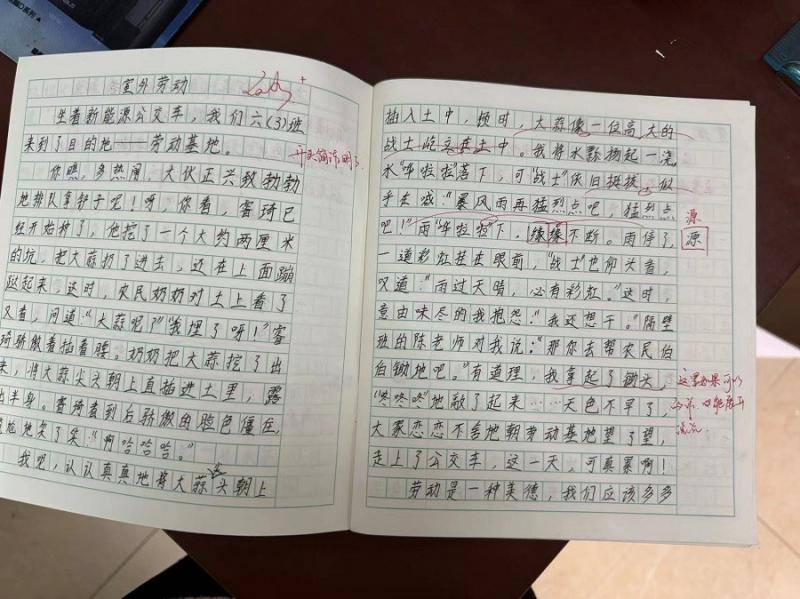 室外劳动
坐着新能源公交车，我们六(3)班
来到了目的地——劳动基地。
你瞧，多热闹，大伙正兴致勃勃
地排队拿铲子呢！呀，你看，睿琦已
经开始种了，他挖了一个大约两厘米
的坑，把大蒜扔了进去，还在上面蹦
跶起来，这时，农民奶奶对土上看了
又看，问道："大蒜呢？""我埋了呀！"睿
琦骄傲着插着腰。奶奶把大蒜挖了出
来，将大蒜尖头朝上直插进土里，露
出半身。睿琦看到后骄傲的脸色僵住，
尴尬地笑了笑："啊哈哈哈。"
我吧，认认真真地将大蒜头朝上
尖
插入土中，顿时，大蒜像一位高大的
战士屹立在土中。我将水瓢扬起一瓷
水"哗啦啦"落下，可"战士"依旧挺拔，似
乎在喊："暴风雨再猛烈点吧，猛烈点
吧！"雨"哗啦啦"下，缘缘不断。雨停了，
源
源
一道彩虹挂在眼前，"战士"也仰头看，
叹道："雨过天晴，必有彩虹。"这时，
意由味尽的我抱怨："我还想干。"隔壁
班的陈老师对我说："那你去帮农民伯
伯锄地吧。"有道理，我拿起了锄头，
"咚咚咚"地敲了起来……天色不早了，
大家恋恋不舍地朝劳动基地望了望，
走上了公交车，这一天，可真累啊！
劳动是一种美德，我们应该多多
这里如果可以